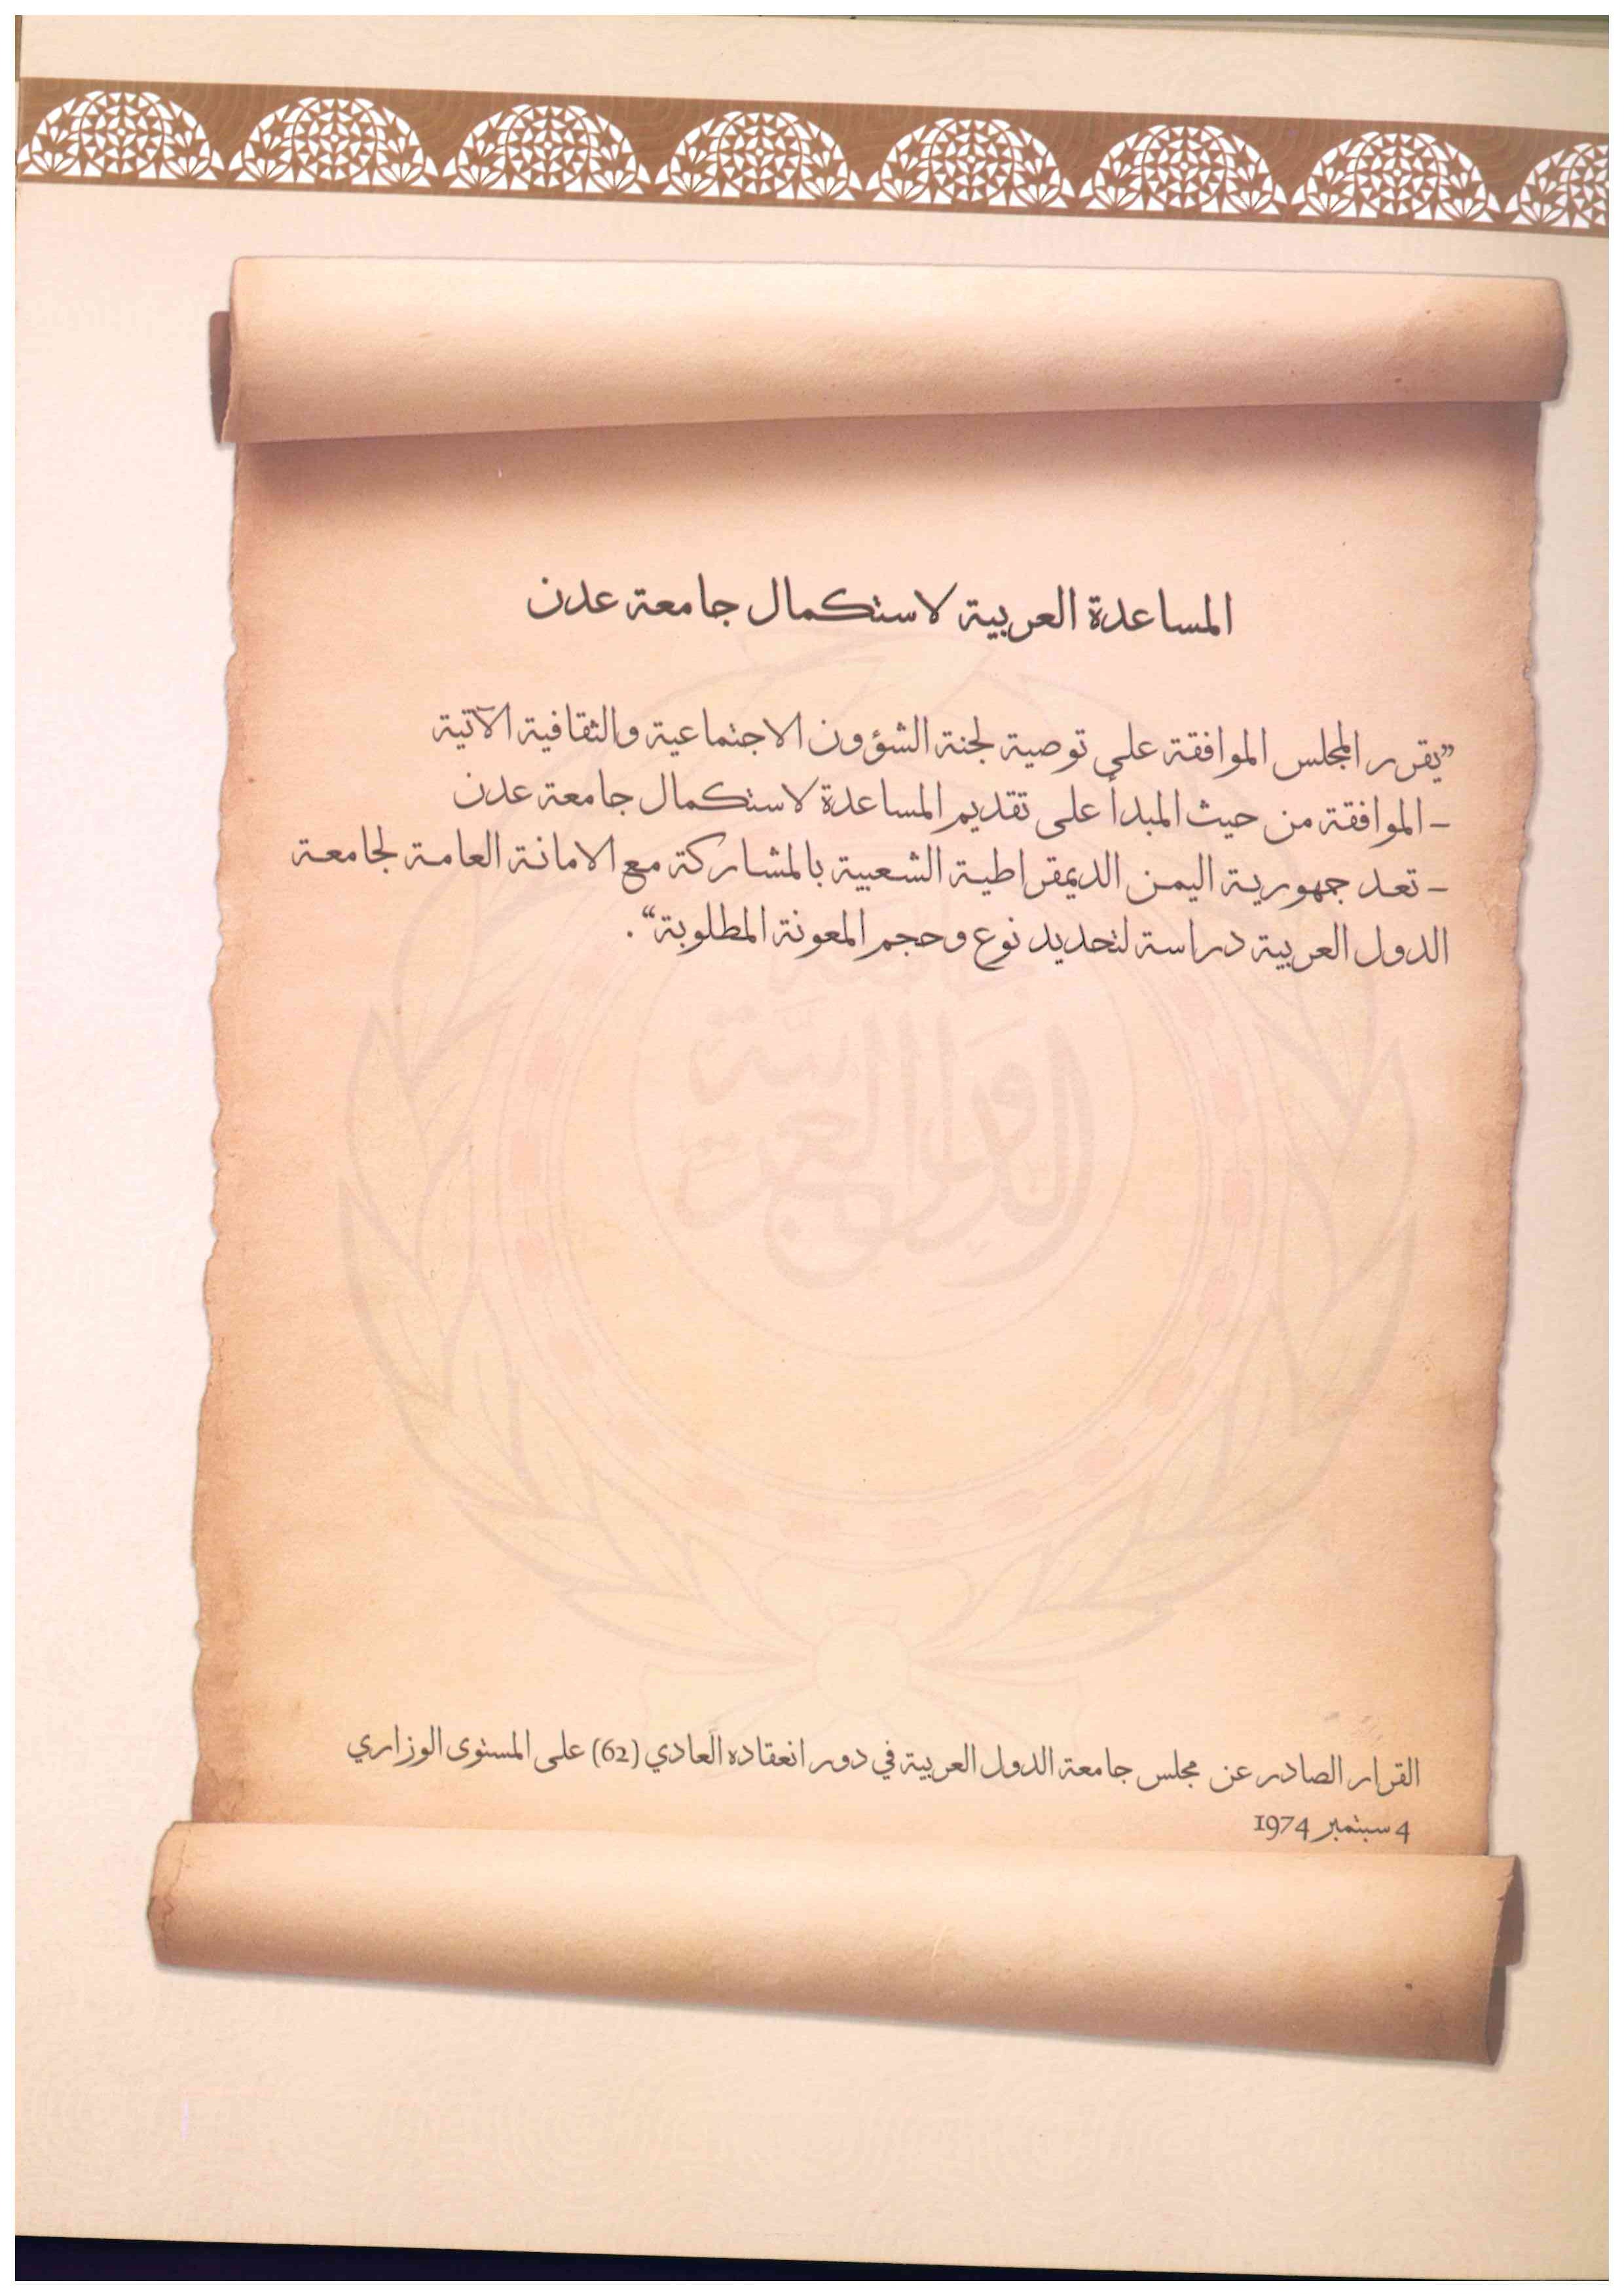 المساعدة العربية لاستكمال جامعة عدن
”يقرر المجلس الموافقة على توصية لجنة الشؤون الاجتماعية والثقافية الآتية
- الموافقة من حيث المبدأ على تقديم المساعدة لاستكمال جامعة عدن
- تعد جمهورية اليمن الديمقراطية الشعبية بالمشاركة مع الامانة العامة لجامعة
الدول العربية دراسة لتحديد نوع وحجم المعونة المطلوبة“.
جامعة
الدول العربية
القرار الصادر عن مجلس جامعة الدول العربية في دور انعقاده العادي (62) على المستوى الوزاري
4 سبتمبر 1974